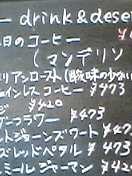 drink & dese
日のコーヒー
(マンデリン
リアンロースト(酸味の少ない
インレスコーヒー ¥473
ジ ¥420
グーフラワー ¥473
ットジーンズワート ¥47
ズレッドペタル ¥473
ミール ジャーマン ¥42